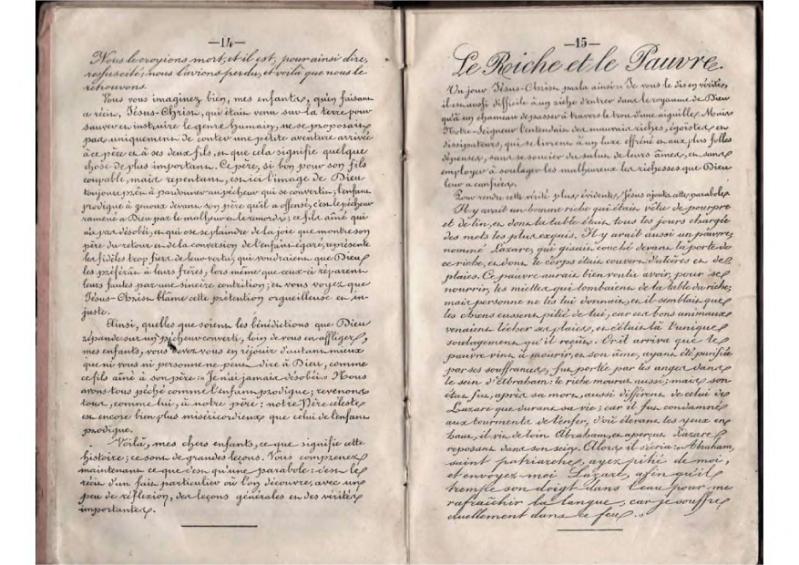 —14—
Nous le croyions mort, et il est, pour ainsi dire,
ressuscité; nous l'avions perdu, et voilà que nous le
retrouvons.
Vous vous imaginez bien, mes enfants, qu'en faisant
ce récit, Jésus-Christ, qui était venu sur la terre pour
sauver et instruire le genre humain, ne se proposait
pas uniquement de conter une petite aventure arrivée
à ce père et à ses deux fils, et que cela signifie quelque
chose de plus important. Ce père, si bon pour son fils
coupable, mais repentant, est ici l'image de Dieu
toujours prêt à pardonner au pécheur qui se convertit; l'enfant
prodigue à genoux devant son père qu'il a offensé, c'est le pécheur
ramené à Dieu par le malheur et le remords; ce fils aîné qui
n'a pas désobéi, et qui ose se plaindre de la joie que montre son
père du retour et de la conversion de l'enfant égaré, représente
les fidèles trop fiers de leur vertu, qui voudraient que Dieu
les préférât à leurs frères, lors même que ceux-ci réparent
leurs fautes par une sincère contrition; et vous voyez que
Jésus-Christ blâme cette prétention orgueilleuse et in-
juste.
Ainsi, quelles que soient les bénédictions que Dieu
répande sur un pécheur converti, loin de vous en affliger,
mes enfants, vous devez vous en réjouir d'autant mieux
que ni vous ni personne ne peut dire à Dieu, comme
ce fils aîné à son père: Je n'ai jamais désobéi. Nous
avons tous péché comme l'enfant prodigue; revenons
tous, comme lui, à notre père: notre Père céleste
est encore bien plus miséricordieux que celui de l'enfant
prodigue.
Voilà, mes chers enfants, ce que signifie cette
histoire; ce sont de grandes leçons. Vous comprenez
maintenant ce que c'est qu'une parabole: c'est le
récit d'un fait particulier où l'on découvre, avec un
peu de réflexion, des leçons générales et des vérités
importantes.
—15—
Le Riche et le Pauvre.
Un jour Jésus-Christ parla ainsi: Je vous le dis en vérité,
il est aussi difficile à un riche d'entrer dans le royaume de Dieu
qu'à un chameau de passer à travers le trou d'une aiguille. Mais
Notre-Seigneur l'entendait des mauvais riches, égoïstes et
dissipateurs, qui se livrent à un luxe effréné et aux plus folles
dépenses, sans se soucier du salut de leurs âmes, et sans
employer à soulager les malheureux les richesses que Dieu
leur a confiées.
Pour rendre cette vérité plus évidente, Jésus ajouta cette parabole:
Il y avait un homme riche qui était vêtu de pourpre
et de lin, et dont la table était tous les jours chargée
des mets les plus exquis. Il y avait aussi un pauvre,
nommé Lazare, qui gisait couché devant la porte de
ce riche, et dont le corps était couvert d'ulcères et de
plaies. Ce pauvre aurait bien voulu avoir, pour se
nourrir, les miettes qui tombaient de la table du riche;
mais personne ne les lui donnait, et il semblait que
les chiens eussent pitié de lui, car ces bons animaux
venaient lécher ses plaies, et c'était là l'unique
soulagement qu'il reçût. Or il arriva que le
pauvre vint à mourir, et son âme, ayant été purifiée
par ses souffrances, fut portée par les anges dans
le sein d'Abraham: le riche mourut aussi; mais son
état fut, après sa mort, aussi différent de celui de
Lazare que durant sa vie; car il fut condamné
aux tourments de l'enfer, d'où élevant les yeux en
haut, il vit de loin Abraham, et aperçut Lazare
reposant dans son sein. Alors il s'écria: Abraham,
saint patriarche, ayez pitié de moi,
et envoyez-moi Lazare, afin qu'il
trempe son doigt dans l'eau pour me
rafraîchir la langue, car je souffre
cruellement dans ce feu.